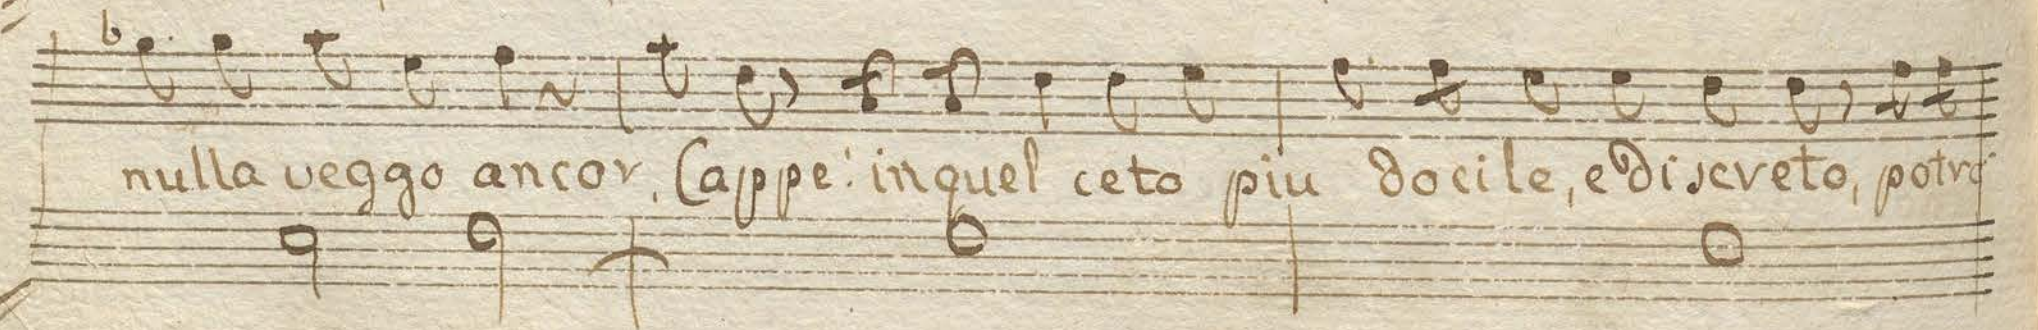 nulla veggo ancor. Cappe! in quel ceto piu docile, e discreto, potrò